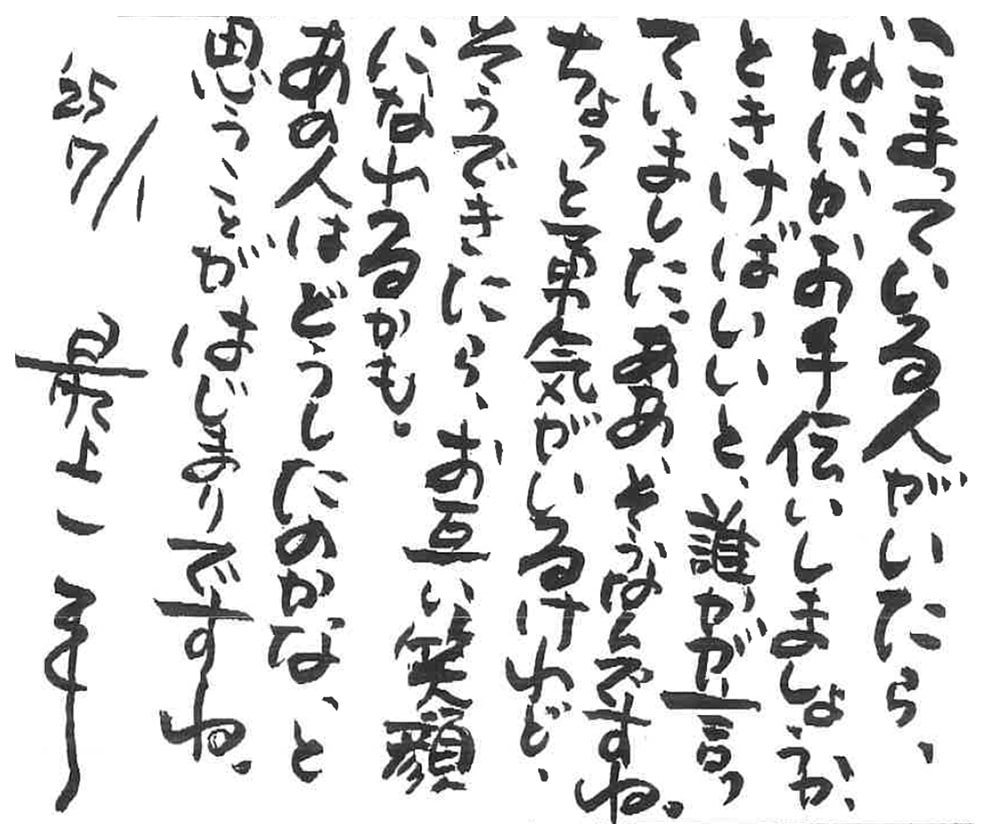 こまっている人がいたら、
なにかお手伝いしましょうか、
ときけばいいと、誰かが言っ
ていました。ああ、そうなんですね。
ちょっと勇気がいるけれど、
そうできたら、お互い笑顔
になれるかも。
あの人はどうしたのかな、と
思うことがはじまりですね。
'25 7/1 最上一平